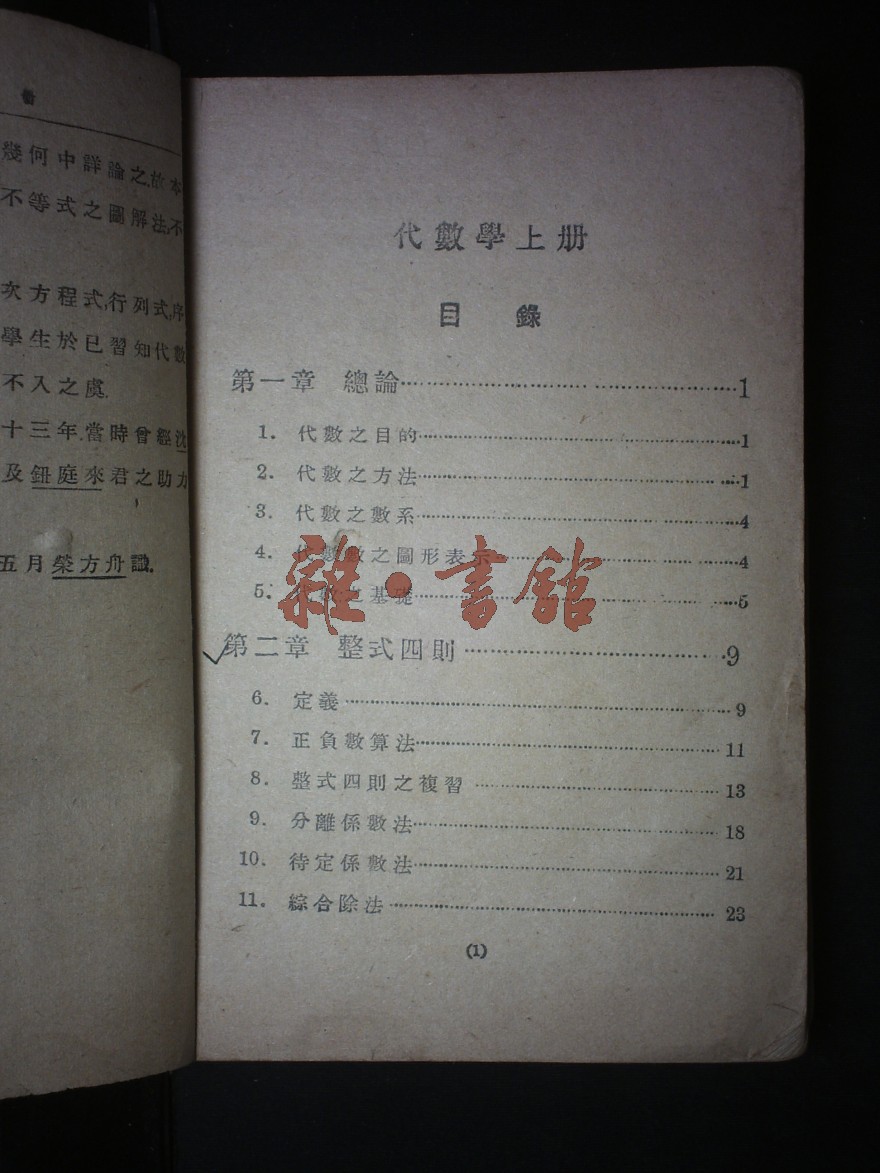 書
幾何中詳論之,故本
不等式之圖解法,不
次方程式,行列式,序
學生於已習知代數
不入之虞.
十三年.當時曾經沈
及鈕庭來君之助力
五月榮方舟識.
代數學上册
目 錄
第一章 總論……1
1. 代數之目的……1
2. 代數之方法……1
3. 代數之數系……4
4. 代數數之圖形表示……4
5. 代數之基礎……5
第二章 整式四則……9
6. 定義……9
7. 正負數算法……11
8. 整式四則之複習……13
9. 分離係數法……18
10. 待定係數法……21
11. 綜合除法……23
(1)
雜·書館